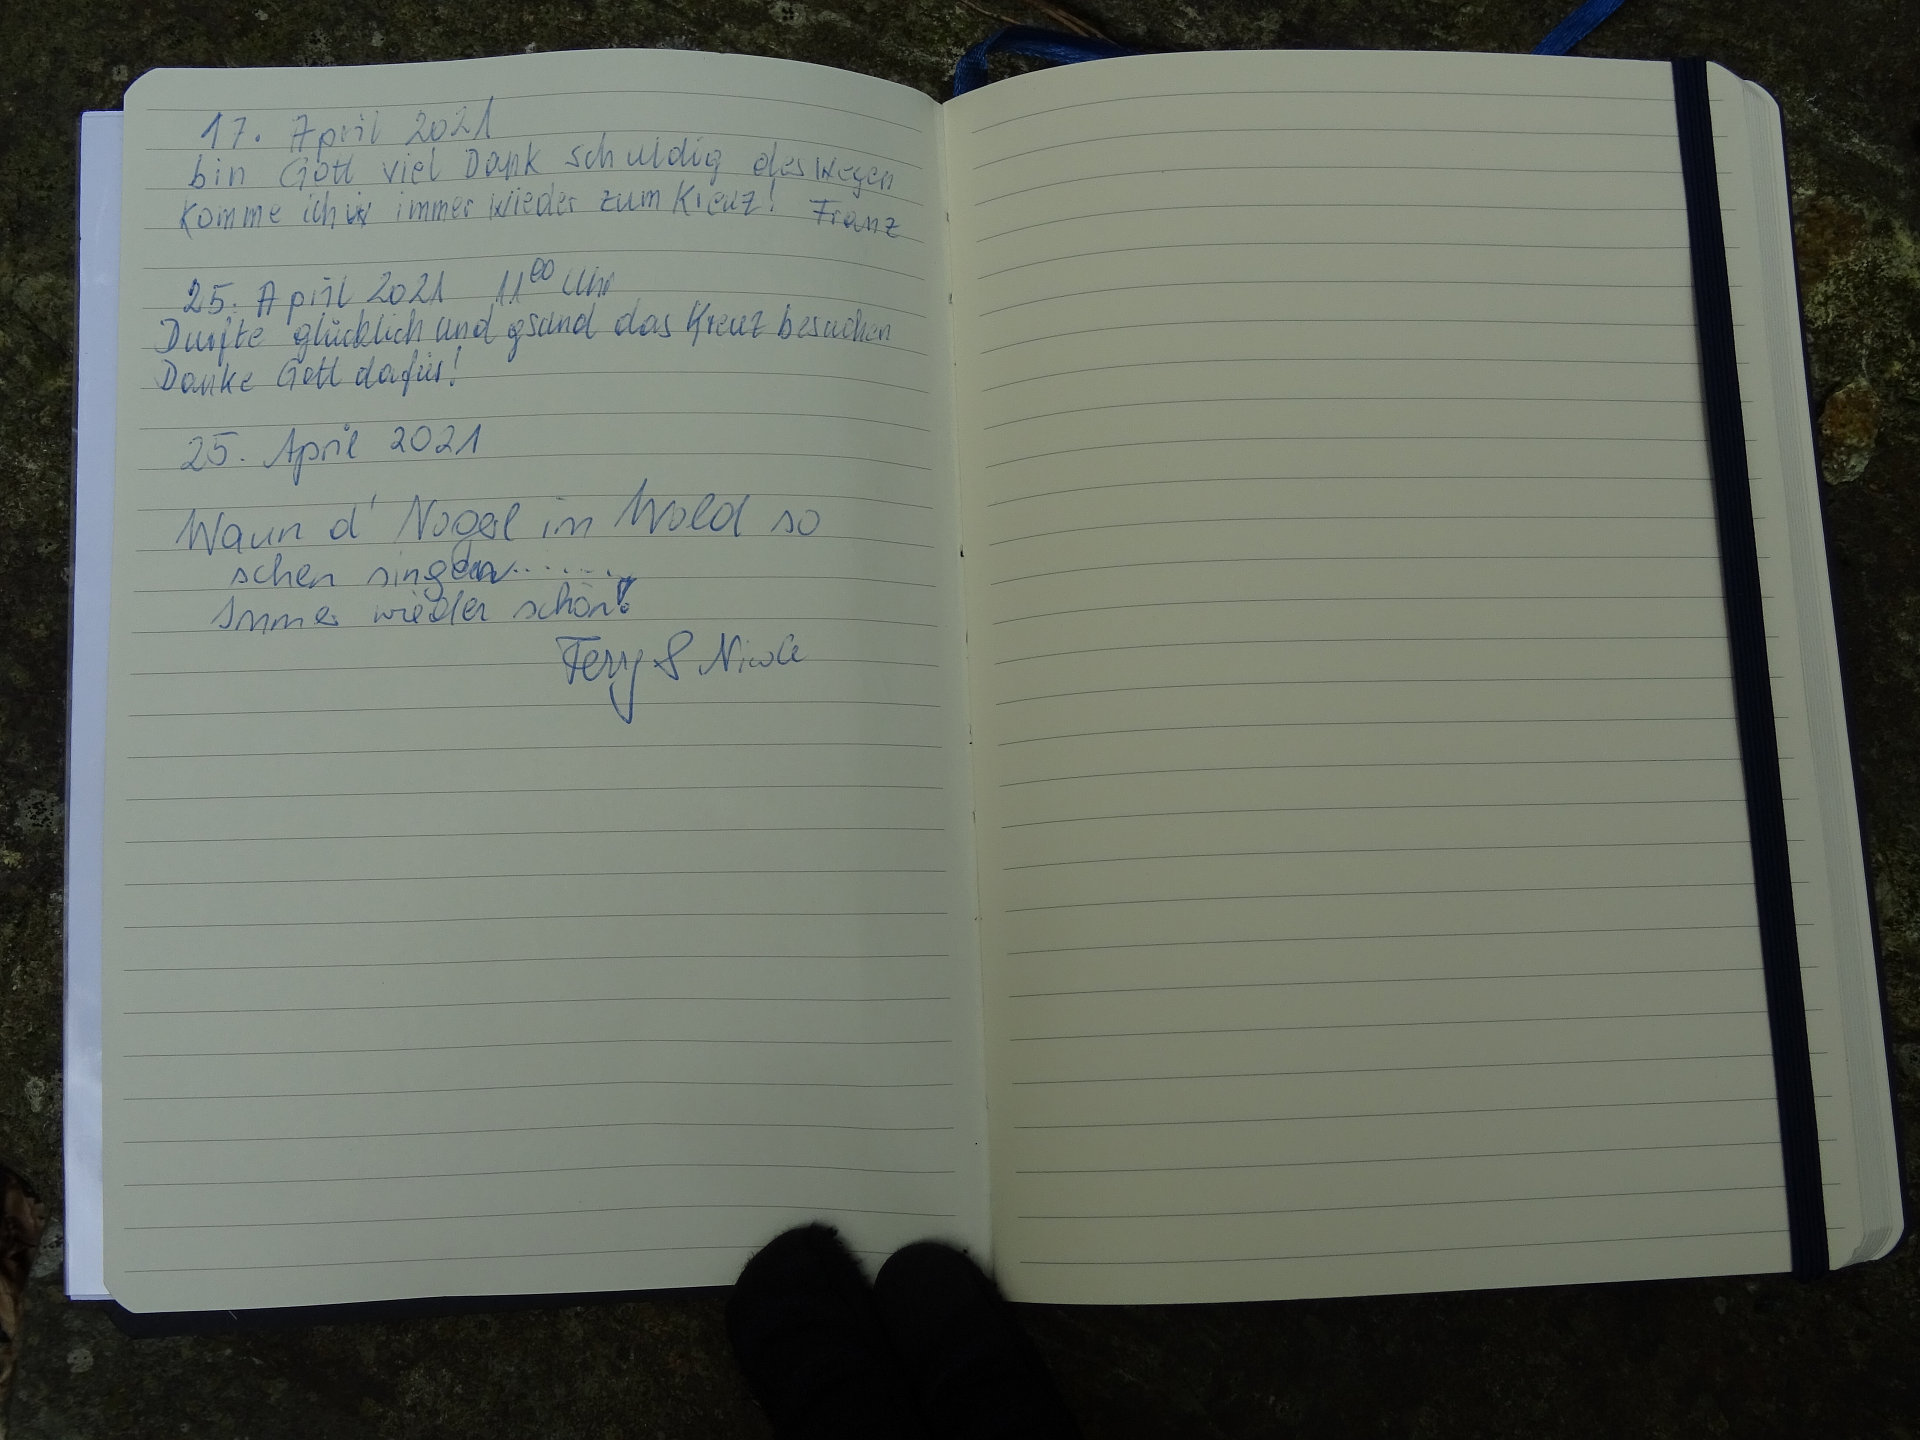 17. April 2021
bin Gott viel Dank schuldig deswegen
Komme ich immer wieder zum Kreuz! Franz
25. April 2021 11⁰⁰ Uhr
Durfte glücklich und gsund das Kreuz besuchen
Danke Gott dafür!
25. April 2021
Waun d' Vogerl im Wold so
schen singen.......
Immer wieder schön!
Ferry & Nicole